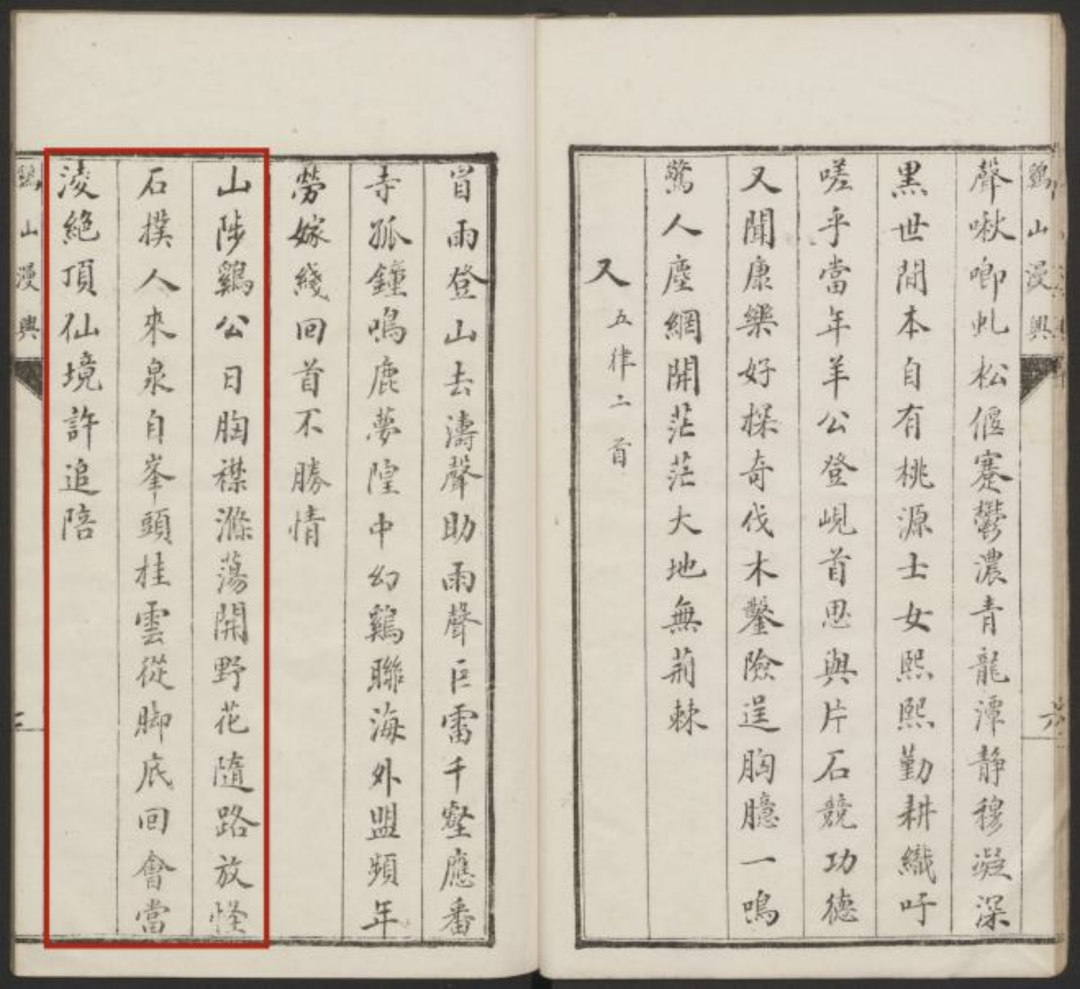 雞山漫興
聲啾唧虬松偃蹇鬱濃青龍潭静穆凝深
黑世間本自有桃源士女熙熙勤耕織吁
嗟乎當年羊公登峴首思與片石競功德
又聞康樂好探奇伐木鑿險逞胸臆一鳴
驚人塵網開茫茫大地無荊棘
又 五律二首
冒雨登山去濤聲助雨聲巨雷千壑應番
寺孤鐘鳴鹿夢隍中幻雞聯海外盟頻年
勞嫁綫回首不勝情
山陟雞公日胸襟滌蕩開野花隨路放怪
石撲人來泉自峯頭挂雲從脚底回會當
淩絕頂仙境許追陪
雞山漫興